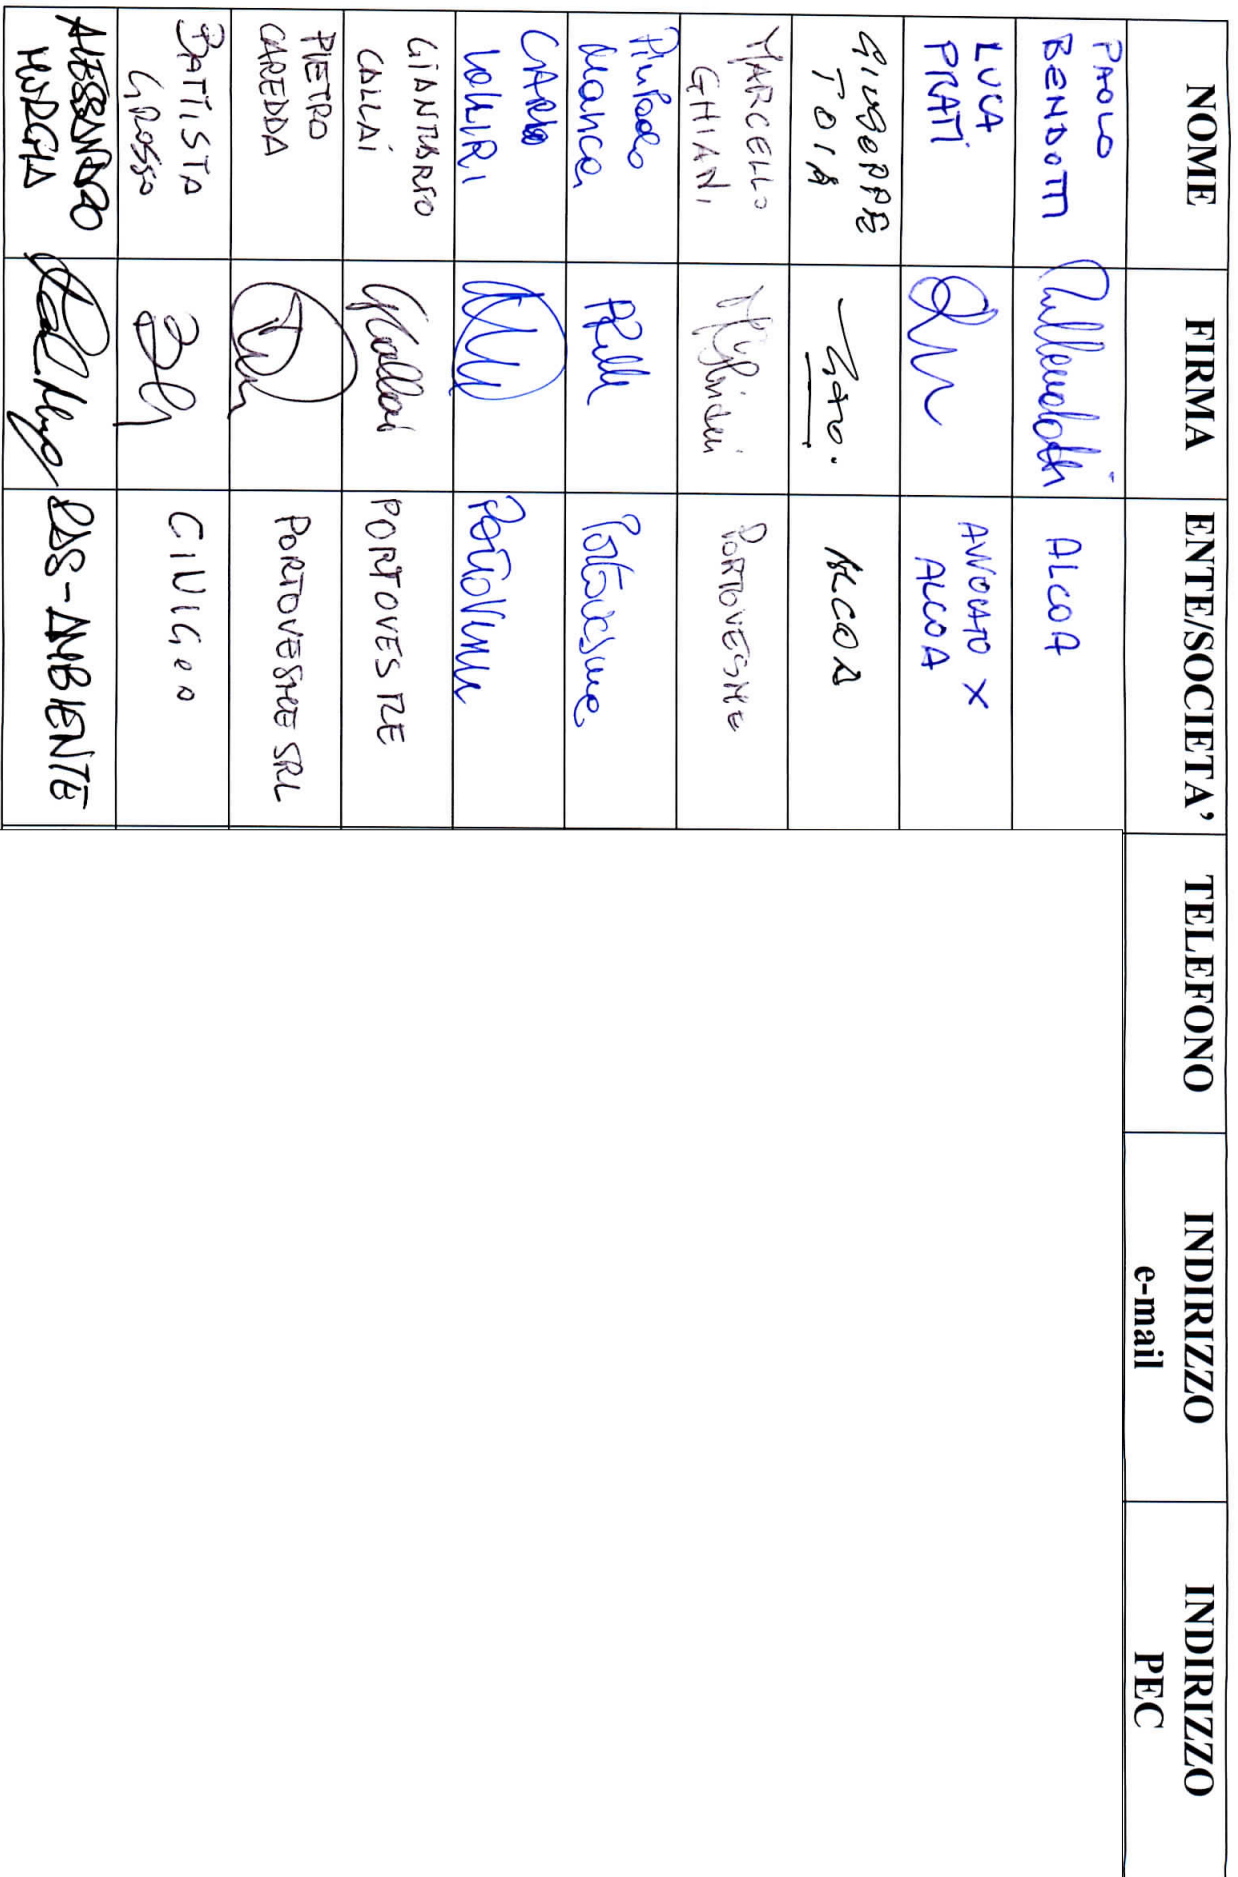 NOME FIRMA ENTE/SOCIETA' TELEFONO INDIRIZZO e-mail INDIRIZZO PEC
PAOLO
BENDOTTI
ALCOA
LUCA
PRATI
AVVOCATO X
ALCOA
GIUSEPPE
TOIA
ALCOA
MARCELLO
GHIANI
PORTOVESME
PinPaolo
Manca
Portovesme
CARLO
LOLLIRI
Portovesme
GIANMARIO
CALLAI
PORTOVESME
PIETRO
CAREDDA
PORTOVESME SRL
BATTISTA
GROSSO
CINIGeo
ALESSANDRO
MURGIA
RAS-AMBIENTE